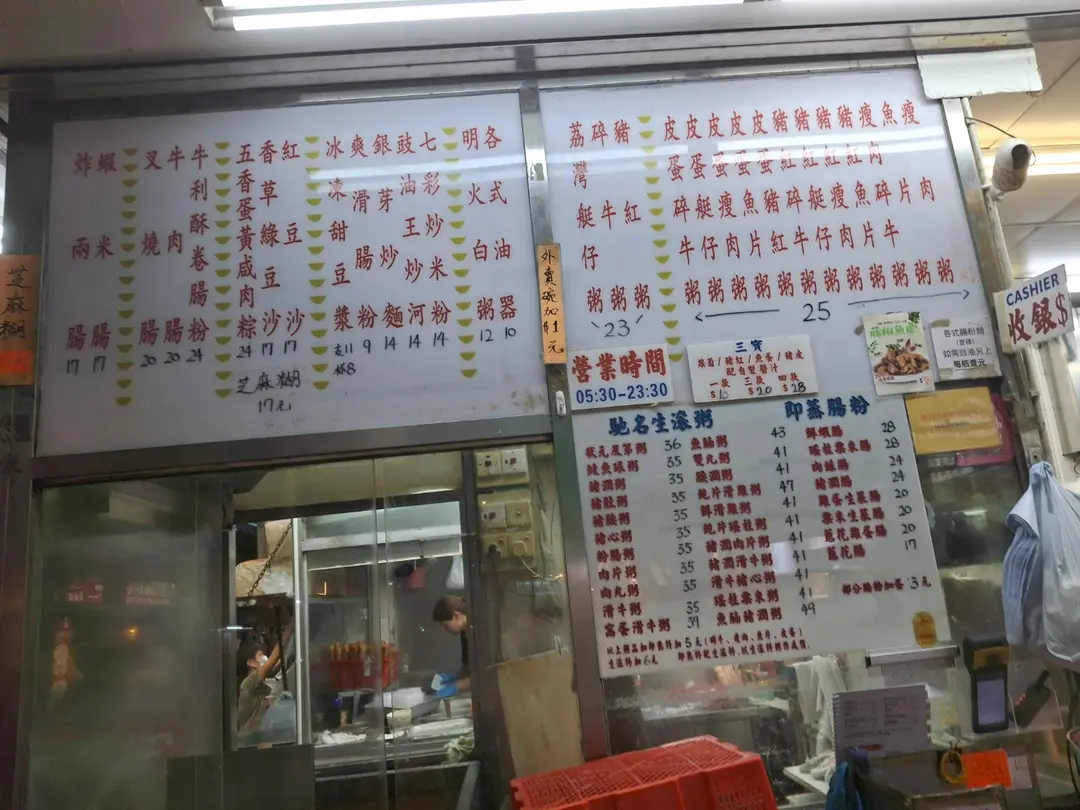 炸兩腸 17
蝦米腸 17
叉燒腸 20
牛肉腸 20
牛利酥卷腸粉 24
五香蛋黃咸肉粽 24
香草綠豆沙 17
紅豆沙 17
芝麻糊
17元
冰凍甜豆漿 支11
杯8
爽滑腸粉 9
銀芽炒麵 14
豉油王炒河 14
七彩炒米粉 14
明火白粥 12
各式油器 10
芝麻糊
外賣碗加1元
荔灣艇仔粥
碎牛粥
豬紅粥
23
皮蛋碎牛粥
皮蛋艇仔粥
皮蛋瘦肉粥
皮蛋魚片粥
皮蛋豬紅粥
豬紅碎牛粥
豬紅艇仔粥
豬紅瘦肉粥
豬紅魚片粥
瘦肉碎牛粥
魚片粥
瘦肉粥
25
營業時間
05:30-23:30
三寶
蘿蔔/豬紅/魚蛋/豬皮
配自製醬汁
一款 三款 四款
$10 $20 $28
各式腸粉類
如需豉油另上
每瓶壹元
CASHIER
收銀$
馳名生滾粥
狀元及第粥 36
鯪魚球粥 35
豬潤粥 35
豬肚粥 35
豬腰粥 35
豬心粥 35
粉腸粥 35
肉片粥 35
肉丸粥 35
滑牛粥 35
窩蛋滑牛粥 39
魚腩粥 43
雙丸粥 41
腰潤粥 41
鮑片滑雞粥 47
鮮滑雞粥 41
鮑片瑤柱粥 41
豬潤肉片粥 41
豬潤滑牛粥 41
滑牛豬心粥 41
瑤柱粟米粥 41
魚腩豬潤粥 49
以上粥品加即熟料加5元(碎牛、瘦肉、魚片、皮蛋)
生滾料加6元
即熟料配生滾料,以生滾料粥作底價。
即蒸腸粉
鮮蝦腸 28
瑤柱粟米腸 28
肉絲腸 24
豬潤腸 24
雞蛋生菜腸 20
粟米生菜腸 20
蔥花雞蛋腸 20
蔥花腸 17
部分腸粉加蛋 3元